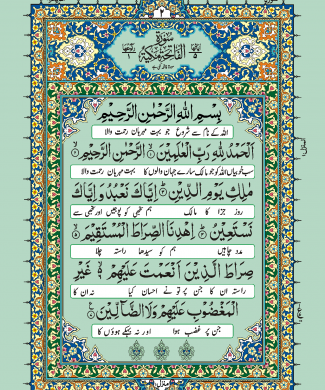 ۲
سُوْرَةُ
الْفَاتِحَةِ مَكِّيَّةٌ
بِسْمِ اللهِ الرَّحْمٰنِ الرَّحِيْمِ
اللہ کے نام سے شروع جو بہت مہربان رحمت والا
اَلْحَمْدُ لِلّٰهِ رَبِّ الْعٰلَمِيْنَ ۙ الرَّحْمٰنِ الرَّحِيْمِ ۙ
سب خوبیاں اللہ کو جو مالک سارے جہان والوں کا بہت مہربان رحمت والا
مٰلِكِ يَوْمِ الدِّيْنِ ؕ اِيَّاكَ نَعْبُدُ وَاِيَّاكَ
روز جزا کا مالک ہم تجھی کو پوجیں اور تجھی سے
نَسْتَعِيْنُ ؕ اِهْدِنَا الصِّرَاطَ الْمُسْتَقِيْمَ ۙ
مدد چاہیں ہم کو سیدھا راستہ چلا
صِرَاطَ الَّذِيْنَ اَنْعَمْتَ عَلَيْهِمْ ۙ غَيْرِ
راستہ ان کا جن پر تو نے احسان کیا نہ ان کا
الْمَغْضُوْبِ عَلَيْهِمْ وَلَا الضَّآلِّيْنَ
جن پر غضب ہوا اور نہ بہکے ہوؤں کا